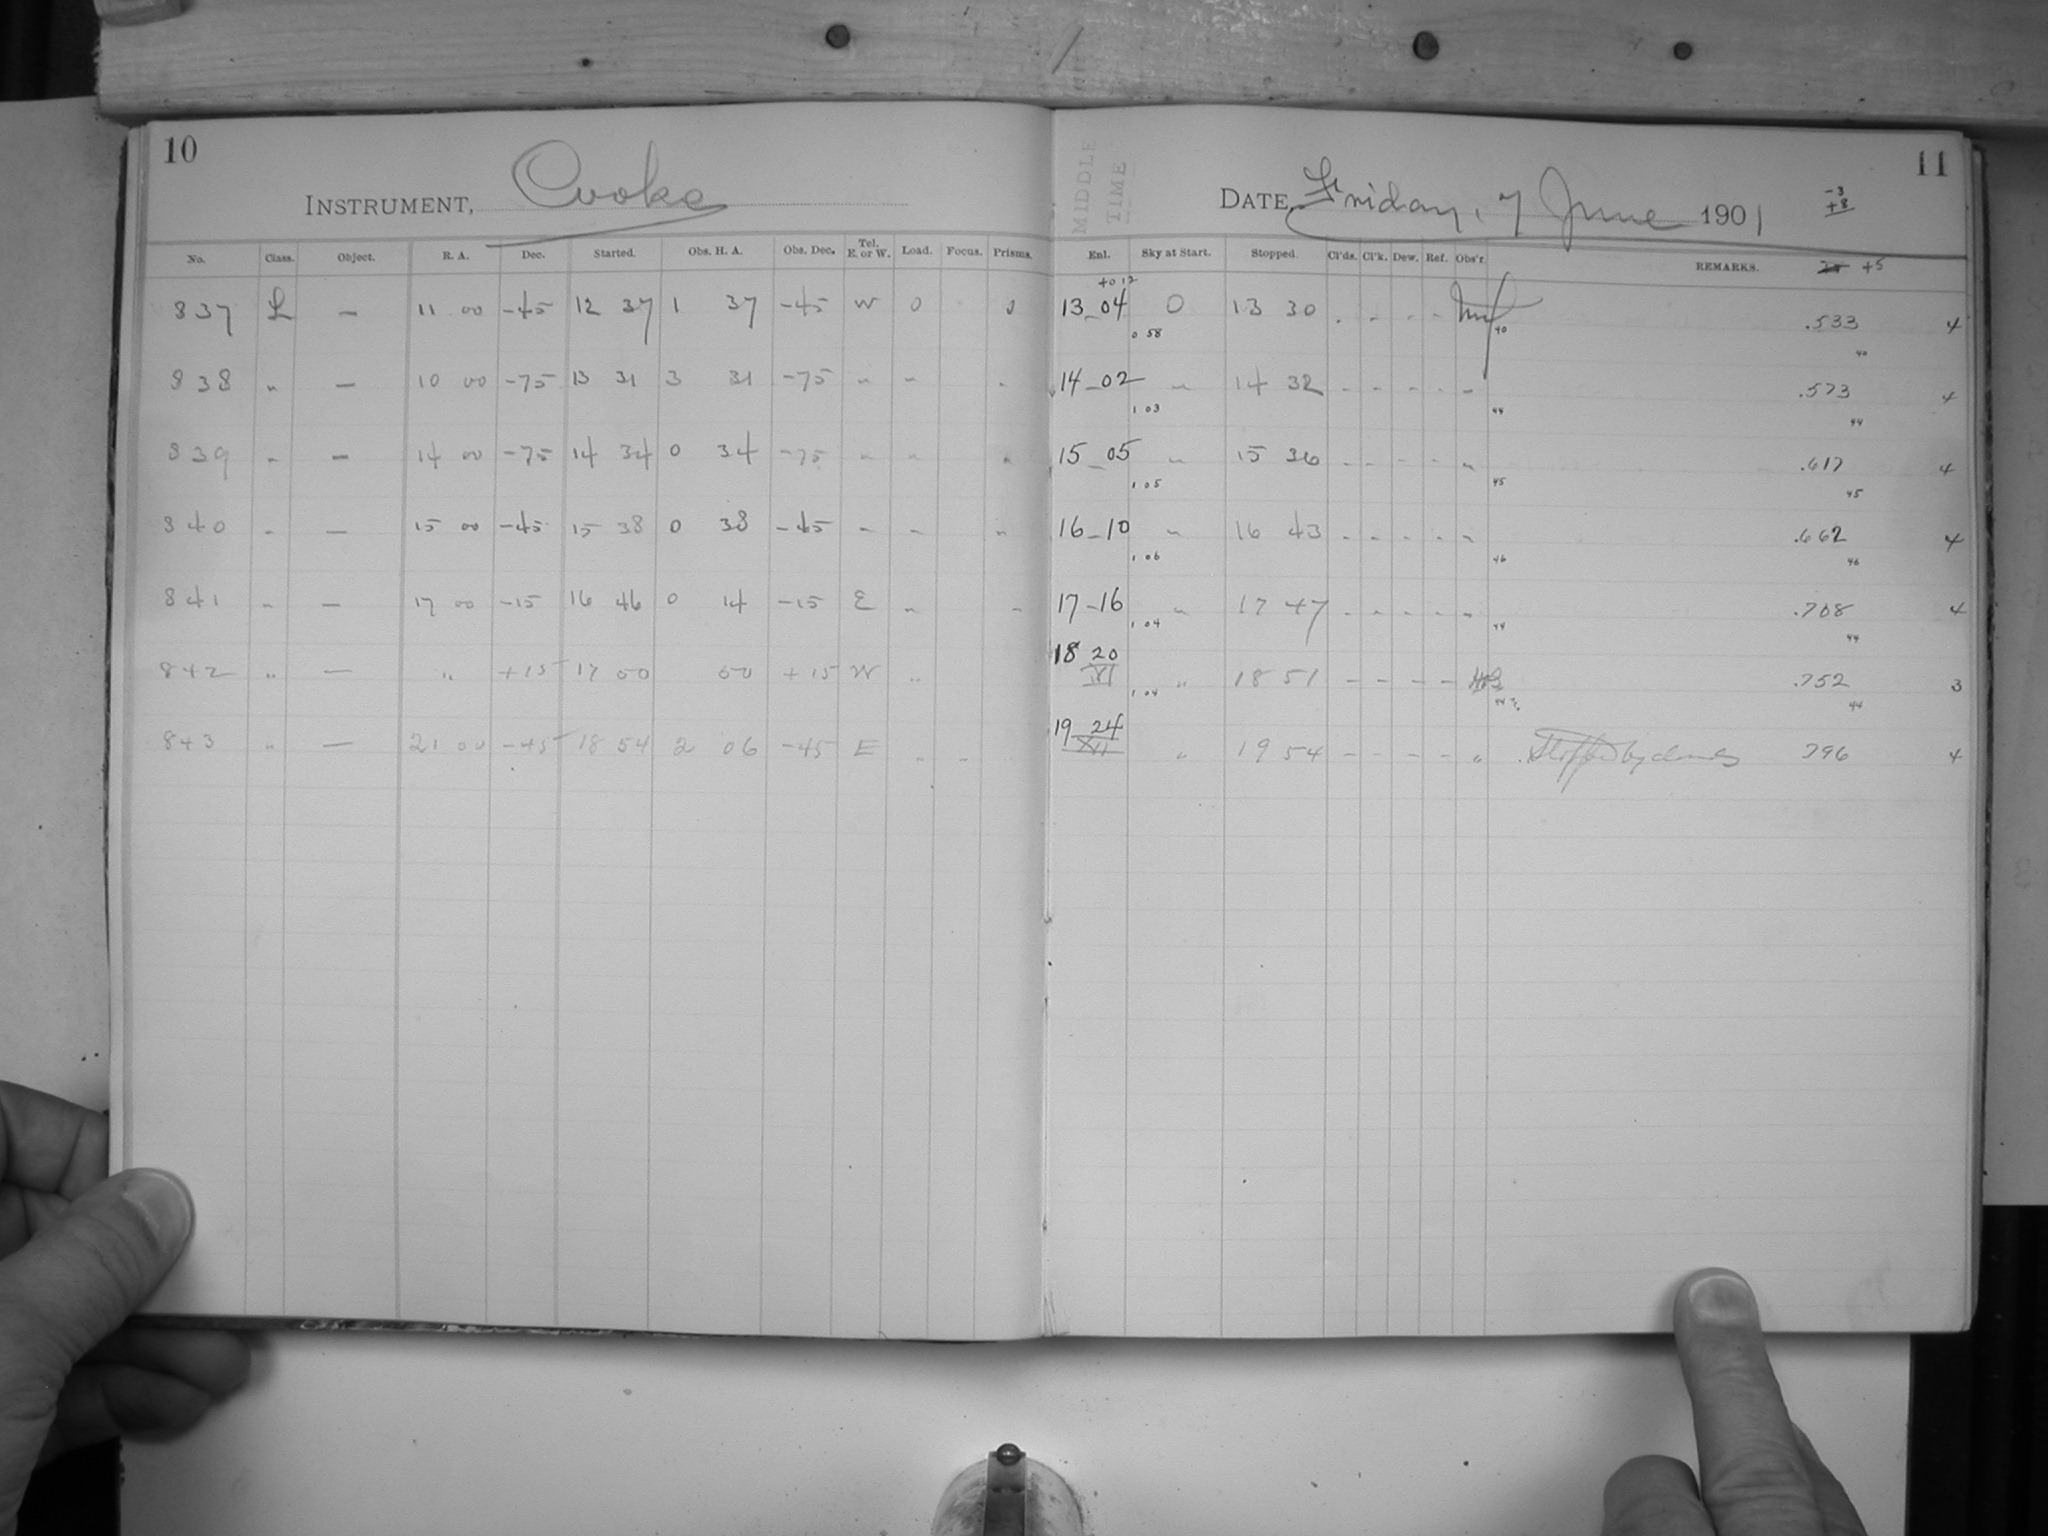 10
INSTRUMENT, Cooke
No. Class. Object. R. A. Dec. Started. Obs. H. A. Obs. Dec. Tel. E. or W. Load. Focus. Prisms.
837 L — 11 00 -45 12 37 1 37 -45 W 0 0
838 " — 10 00 -75 13 31 3 31 -75 " " "
839 " — 14 00 -75 14 34 0 34 -75 " " "
840 " — 15 00 -45 15 38 0 38 -45 " " "
841 " — 17 00 -15 16 46 0 14 -15 E " "
842 " — " +15 17 50 50 +15 W "
843 " — 21 00 -45 18 54 2 06 -45 E " "
11
MIDDLE TIME
DATE, Friday, 7 June 1901
-3
+8
+5
Enl. Sky at Start. Stopped. Cl'ds. Cl'k. Dew. Ref. Obs'r. REMARKS.
+0 12
13_04 0 13 30 - - - - .533 4
0 58 40 40
14_02 " 14 32 - - - - " .573 4
1 03 44 44
15_05 " 15 36 - - - - " .617 4
1 05 45 45
16_10 " 16 43 - - - - " .662 4
1 06 46 46
17_16 " 17 47 - - - - " .708 4
1 04 44 44
18 20
XI " 18 51 - - - - .752 3
1 04 44 44
19 24
XII " 19 54 - - - - " Stopped by clouds 796 4